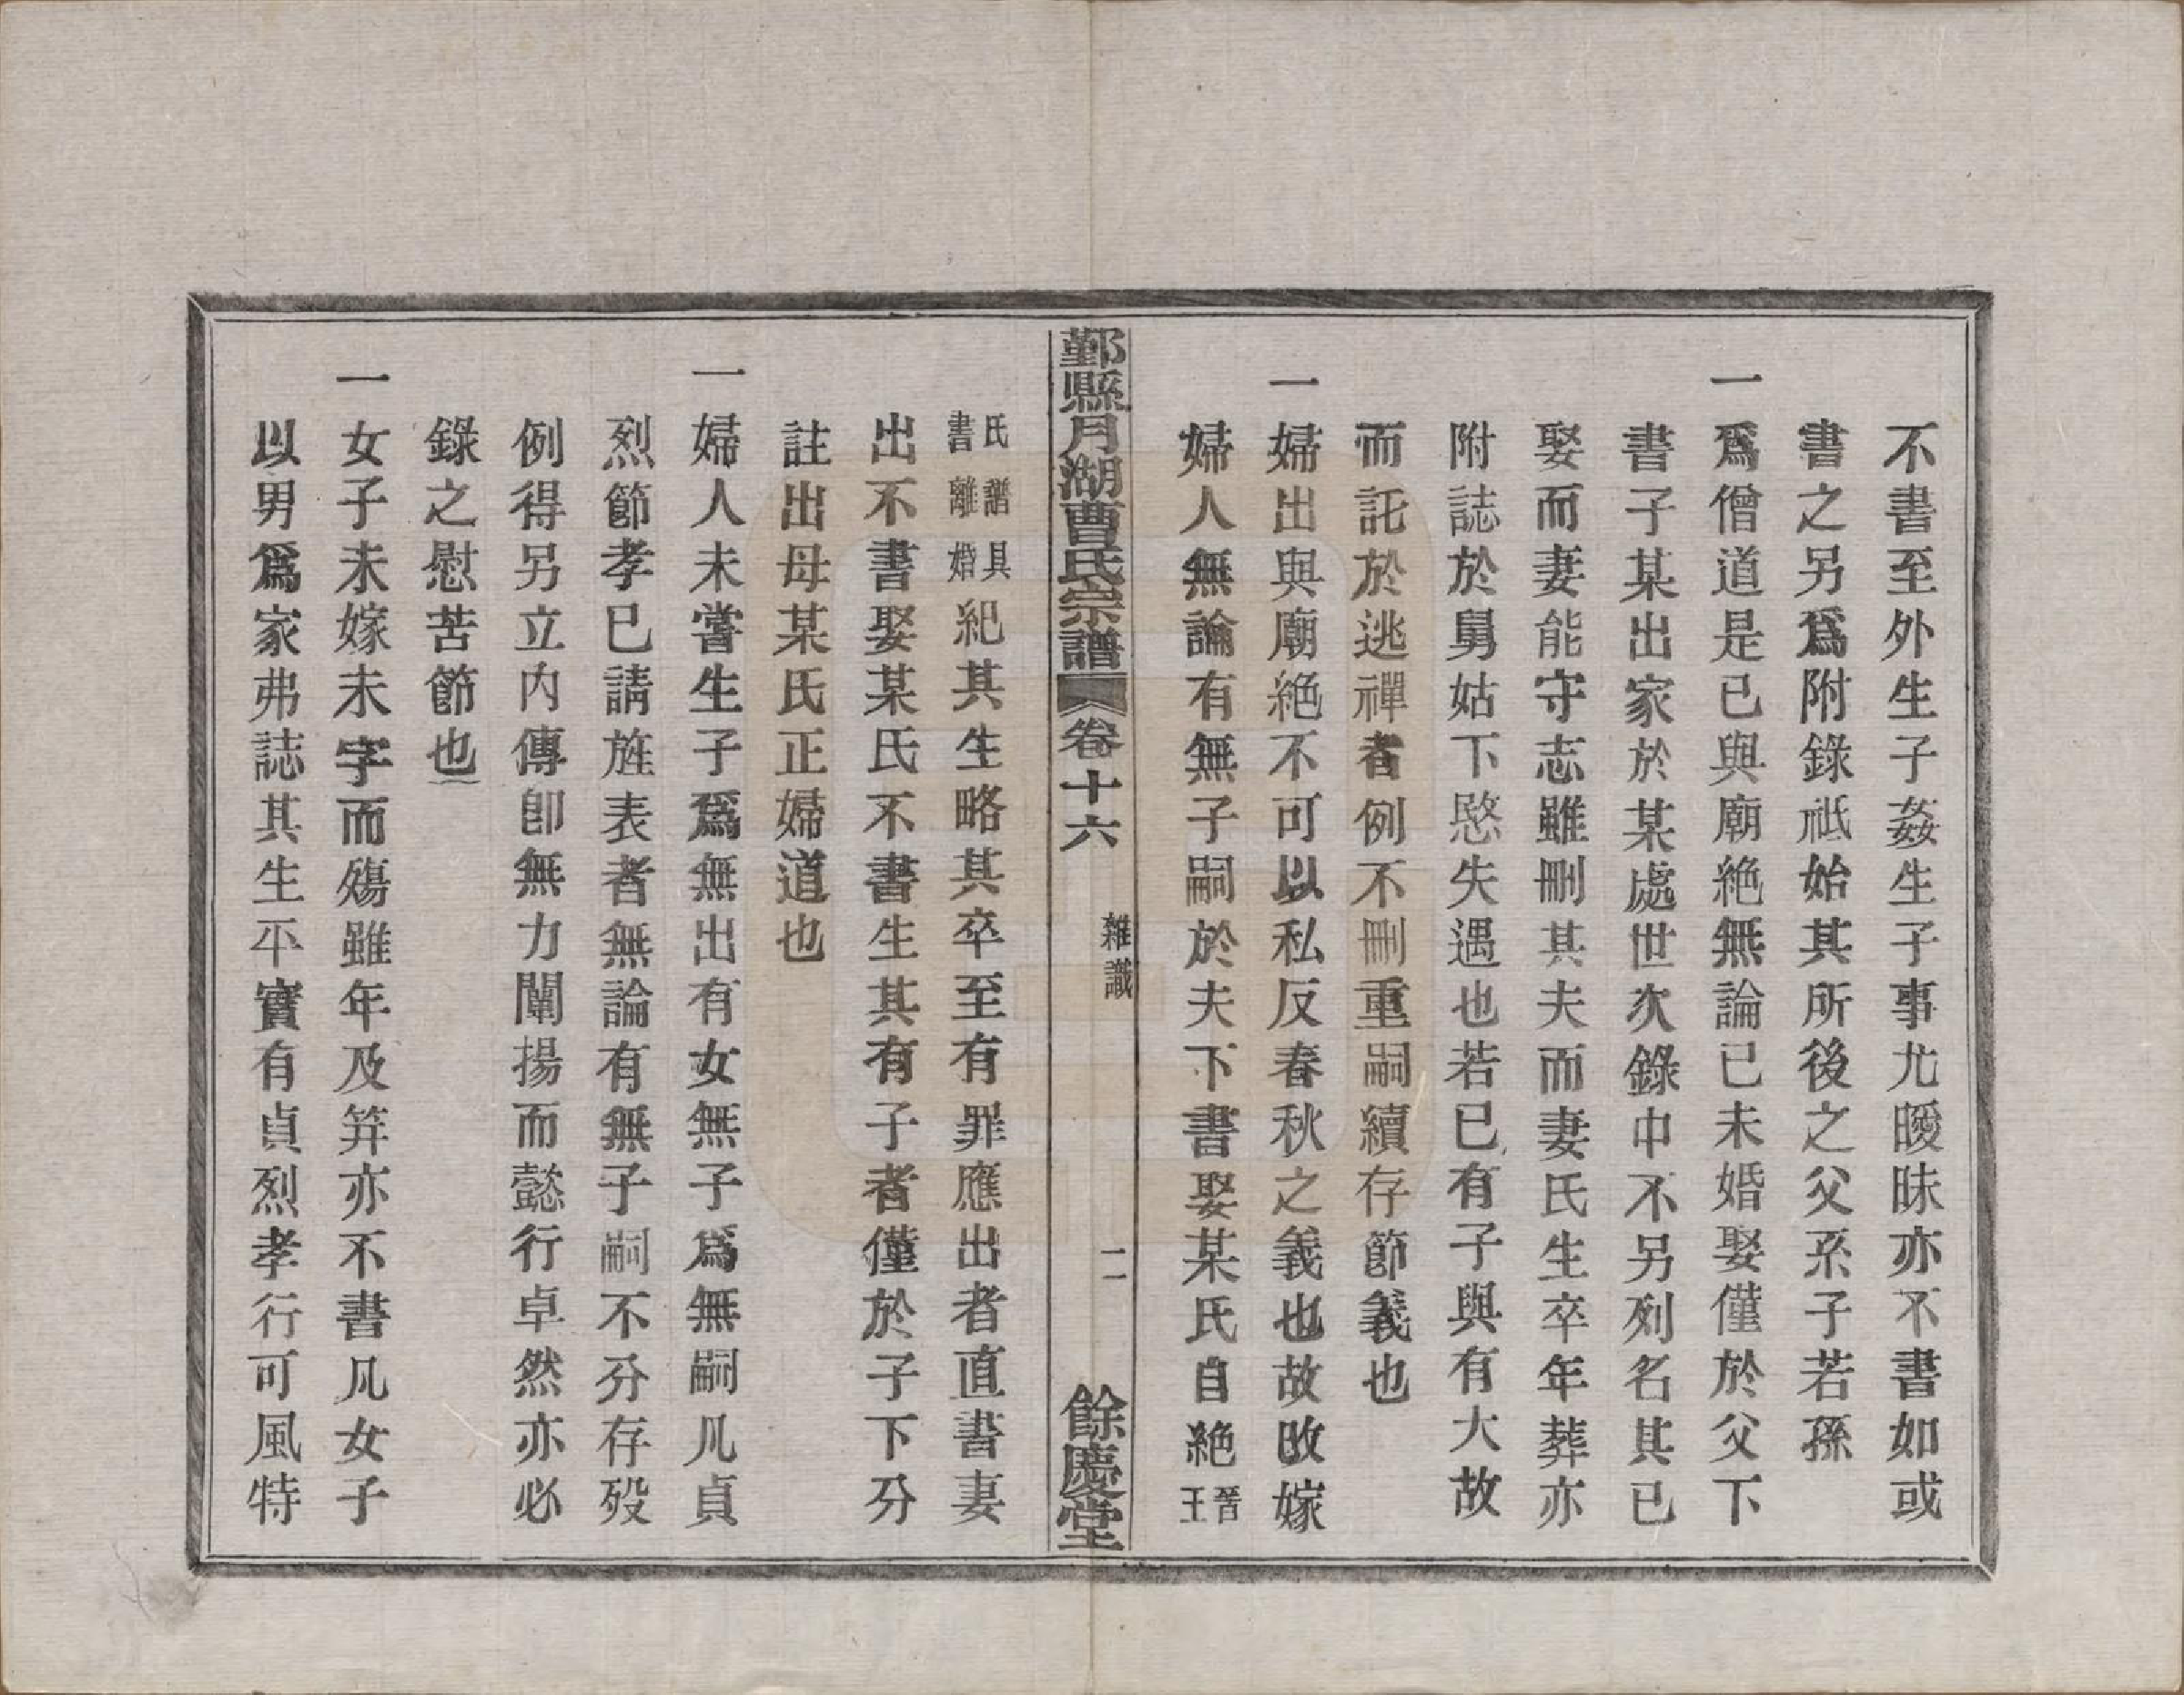 不書至外生子姦生子事尤曖昧亦不書如或
書之另爲附錄祗始其所後之父系子若孫
一爲僧道是已與廟絶無論已未婚娶僅於父下
書子某出家於某處世次錄中不另列名其已
娶而妻能守志雖刪其夫而妻氏生卒年葬亦
附誌於舅姑下愍失遇也若已有子與有大故
而託於逃禪者例不刪重嗣續存節義也
一婦出與廟絶不可以私反春秋之義也故改嫁
婦人無論有無子嗣於夫下書娶某氏自絶晉王
鄞縣月湖曹氏宗譜 卷十六 雜識 二 餘慶堂
氏譜具書離婚紀其生略其卒至有罪應出者直書妻
出不書娶某氏不書生其有子者僅於子下分
註出母某氏正婦道也
一婦人未嘗生子爲無出有女無子爲無嗣凡貞
烈節孝已請旌表者無論有無子嗣不分存歿
例得另立內傳卽無力闡揚而懿行卓然亦必
錄之慰苦節也
一女子未嫁未字而殤雖年及笄亦不書凡女子
以男爲家弗誌其生平實有貞烈孝行可風特